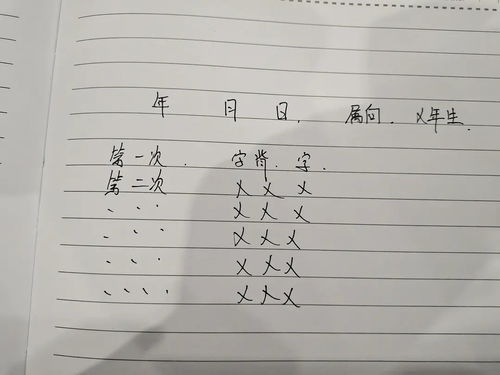 年 月 日. 属向. X年生.
第一次. 字背. 字.
第二次 X X X
、、、 X X X
、、、 X X X
、、、 X X X
、、、、 X X X